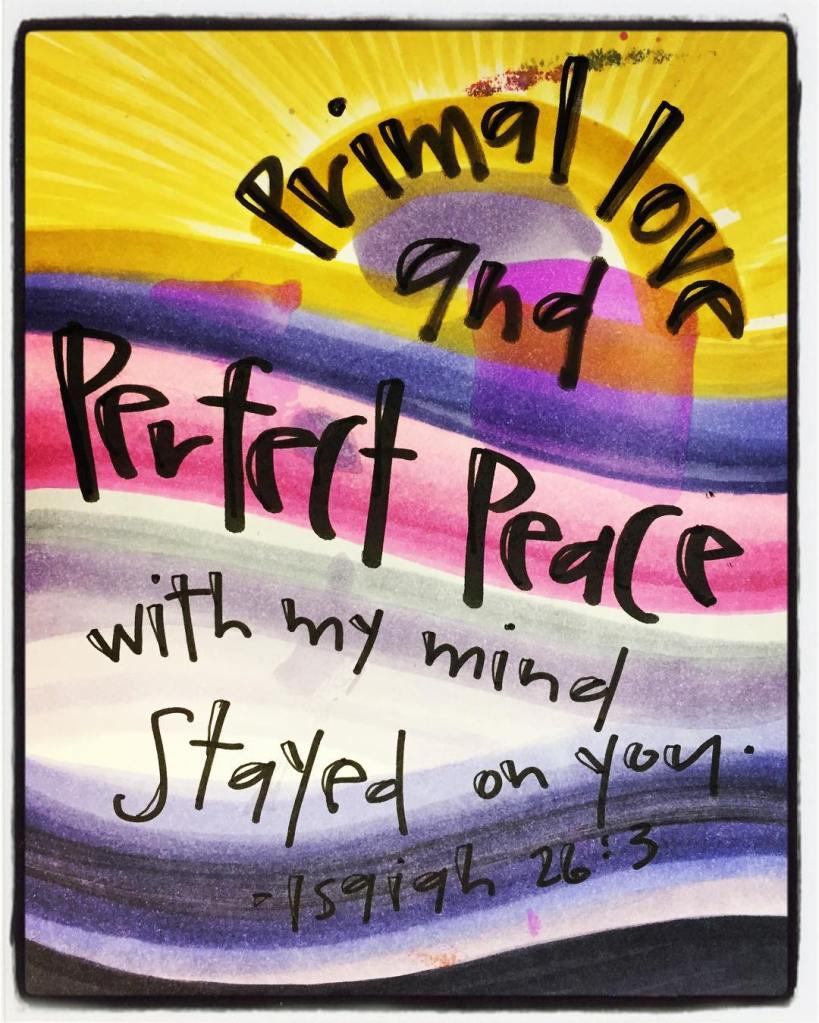 Primal love
and
Perfect Peace
with my mind
Stayed on you.
-Isaiah 26:3